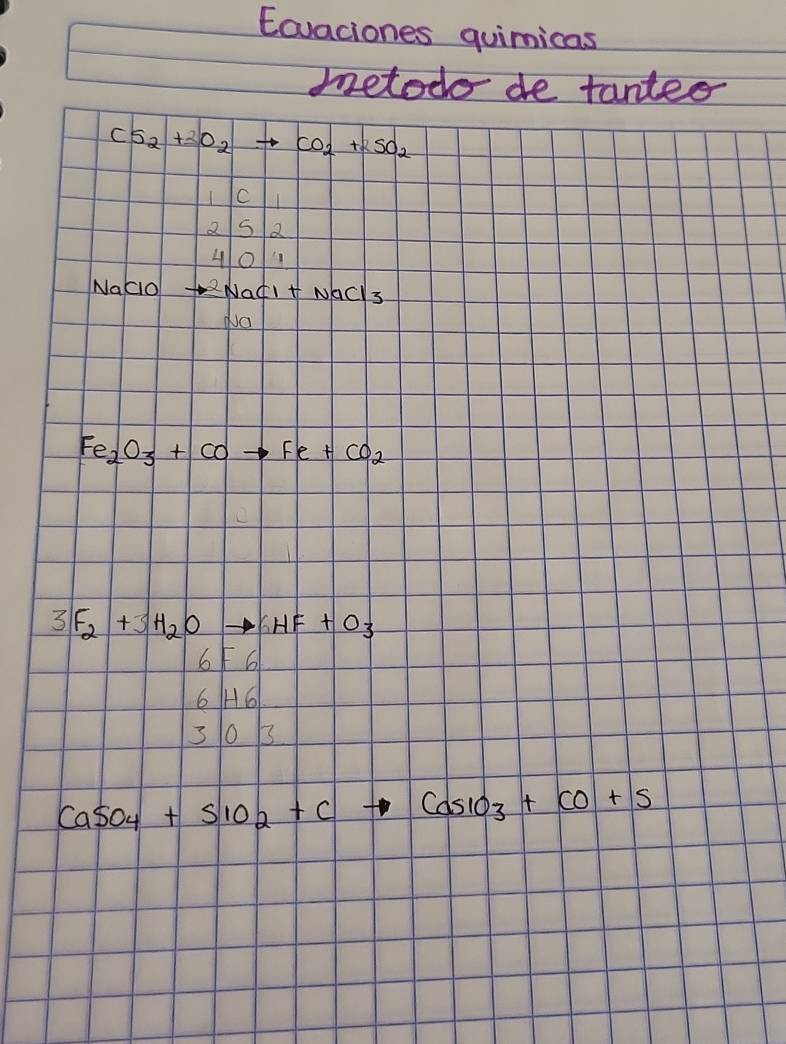 Ecuaciones quimicas
metodo de tanteo
CS2 + 3O2 → CO2 + 2SO2
1 C 1
2 S 2
4 O
NaClO → 2NaCl + NaCl3
Na
Fe2O3 + CO → Fe + CO2
3F2 + 3H2O → 6HF + O3
6 F 6
6 H 6
3 O 3
CaSO4 + SiO2 + C → CaSiO3 + CO + S